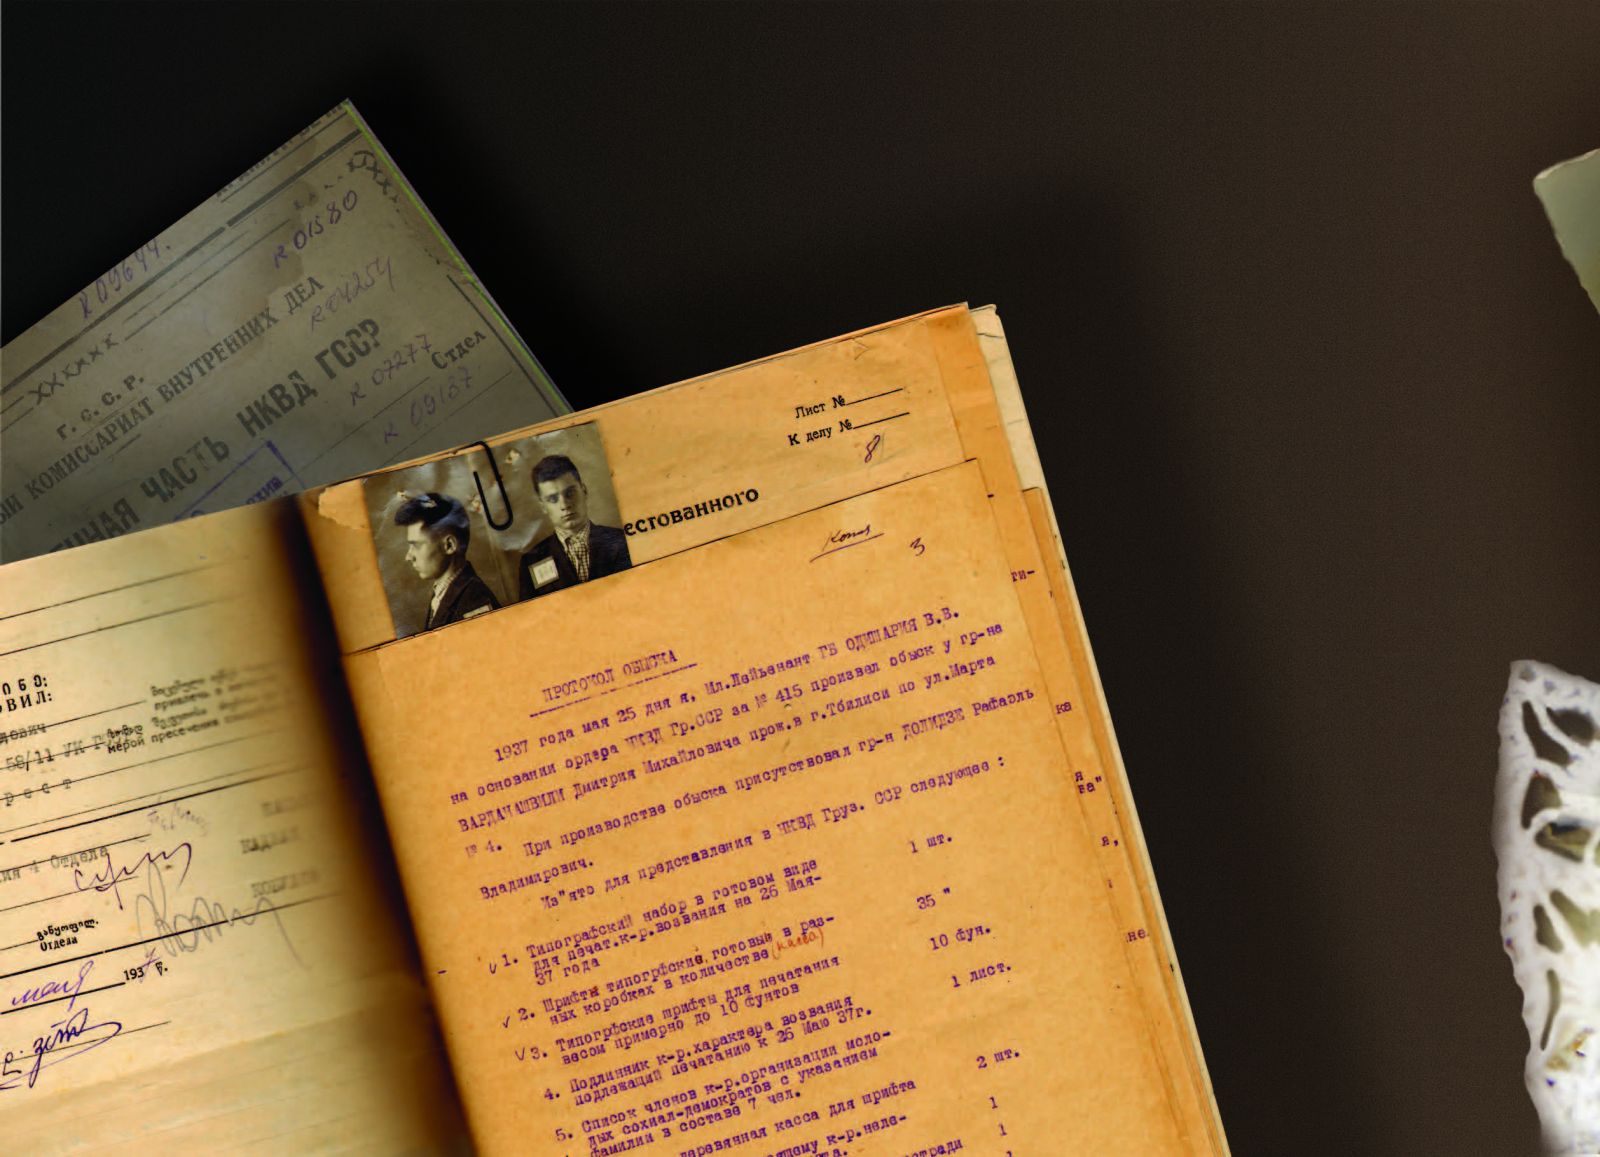 R 09644.
R 01580
ХХХХХХ
Г. С. С. Р.
КОМИССАРИАТ ВНУТРЕННИХ ДЕЛ
R 04254
ЧАСТЬ НКВД ГССР
R 07277
Отдел
R 09137.
Лист №
К делу №
8
естованного
Копия
3
ПРОТОКОЛ ОБЫСКА
1937 года мая 25 дня я, Мл.Лейтенант ГБ ОДИШАРИЯ В.В.
на основании ордера НКВД Гр.ССР за № 415 произвел обыск у гр-на
ВАРДАЧАШВИЛИ Дмитрия Михайловича прож.в г.Тбилиси по ул.Марта
№ 4. При производстве обыска присутствовал гр-н ДОЛИДЗЕ Рафаэль
Владимирович.
Из"ято для представления в НКВД Груз. ССР следующее :
1. Типографский набор в готовом виде 1 шт.
для печат.к-р.возвания на 26 Мая-
37 года
2. Шрифты типогрфские,готовые в раз- 35 "
ных коробках в количестве (касса)
3. Типогрфские шрифты для печатания 10 фун.
весом примерно до 10 фунтов
4. Подлинник к-р.характера возвания 1 лист.
подлежащий печатанию к 26 Маю 37г.
5. Список членов к-р.организации моло-
дых социал-демократов с указанием
фамилии в составе 7 чел. 2 шт.
деревянная касса для шрифта
к-р.неле- 1
1
ОВИЛ:
58/11 УК
мерой пресечения
4 Отдела
განყოფილ.
Отдела
мая 1937 г.